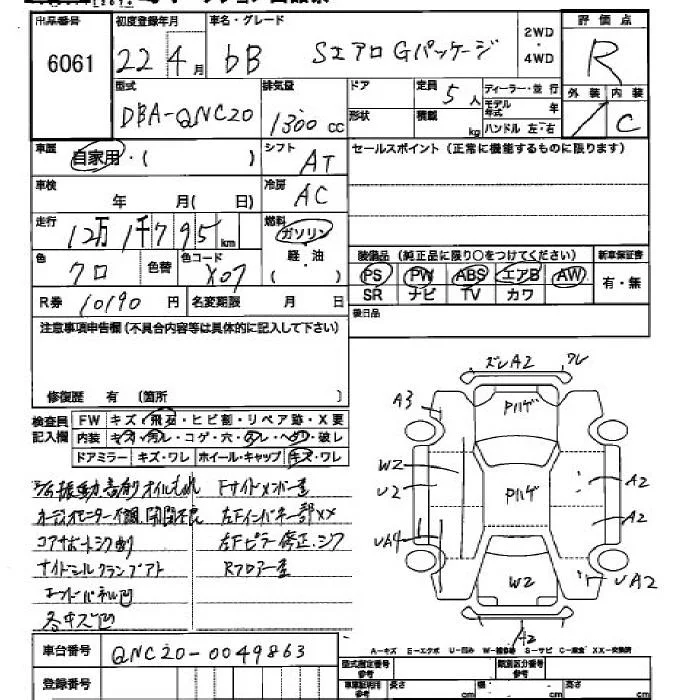 出品番号 初度登録年月 車名・グレード 2WD・4WD 評価点
6061 22 4月 bB SエアロGパッケージ R
型式 排気量 ドア 定員 ディーラー・並行 外装 内装
DBA-QNC20 1300cc 5人 モデル年式 年 C
形状 積載 kg ハンドル 左・右
車歴 自家用・( ) シフト AT セールスポイント(正常に機能するものに限ります)
車検 年 月(日) 冷房 AC
走行 12万1千795km 燃料 ガソリン 軽・油 ( )
色 クロ 色替 色コード X07
装備品(純正品に限り○をつけてください) 新車保証書
PS PW ABS エアB AW 有・無
SR ナビ TV カワ
R券 10190円 名変期限 月 日 後日品
注意事項申告欄(不具合内容等は具体的に記入して下さい)
修復歴 有 (箇所 )
検査員記入欄 FW キズ・飛石・ヒビ割・リペア跡・X要
内装 キズ・汚レ・コゲ・穴・スレ・ヘタリ・破レ
ドアミラー キズ・ワレ ホイール・キャップ キズ・ワレ
振動 オイルもれ Fサイドメンバー歪
オーディオモニター不調 開閉不良 左Fインパネ部XX
コアサポート 左Fピラー修正
サイドシルクランプアト Rフロアー歪
エンドパネル凹
各キズ凹
ズレA2 ワレ
A3 Pハゲ
W2
U2 Pハゲ A2
UA4 A2
W2 UA2
A2
A-キズ E-エクボ U-凹み W-補修跡 S-サビ C-腐食 XX-交換済
車台番号 QNC20-0049863
型式指定番号 参考 類別区分番号 参考
登録番号 車庫証明用 参考 長さ cm 幅 cm 高さ cm